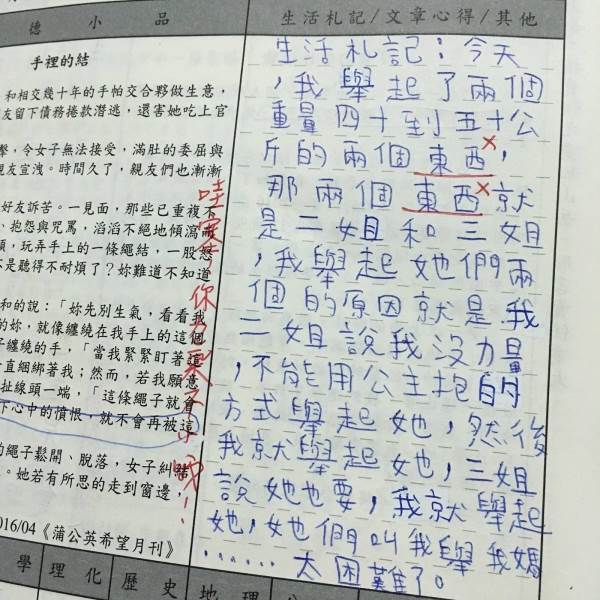 德小品
手裡的結
和相交幾十年的手帕交合夥做生意，
友留下債務捲款潛逃，還害她吃上官
擊，令女子無法接受，滿肚的委屈與
親友宣洩。時間久了，親友們也漸漸
好友訴苦。一見面，那些已重複不
、抱怨與咒罵，滔滔不絕地傾瀉而
，玩弄手上的一條繩結，一股怒
不是聽得不耐煩了？妳難道不知道
和的說：「妳先別生氣，看看我
的妳，就像纏繞在我手上的這個
子纏繞的手，「當我緊緊盯著這
一直綑綁著我；然而，若我願意
扯線頭一端，「這條繩子就會
下心中的憤恨，就不會再被這
的繩子鬆開、脫落，女子糾結
。她若有所思的走到窗邊，
016/04《蒲公英希望月刊》
哇塞！你力
生活札記/文章心得/其他
生活札記：今天
，我舉起了兩個
重量四十到五十公
斤的兩個東西，
那兩個東西就
是二姐和三姐
，我舉起她們兩
個的原因就是我
二姐說我沒力量
，不能用公主抱的
方式舉起她，然後
我就舉起她，三姐
說她也要，我就舉起
她，她們叫我舉我媽
……太困難了。
學 理化 歷史 地理